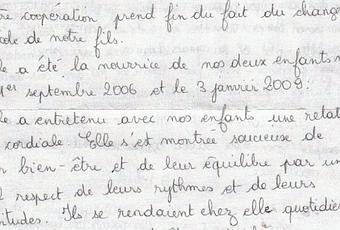 re coopération prend fin du fait du change
ole de notre fils.
le a été la nourrice de nos deux enfants
1er septembre 2006 et le 3 janvier 2009:
le a entretenu avec nos enfants une relat
cordiale. Elle s'est montrée soucieuse de
r bien-être et de leur équilibre par un
l respect de leurs rythmes et de leurs
itudes. Ils se rendaient chez elle quotidie